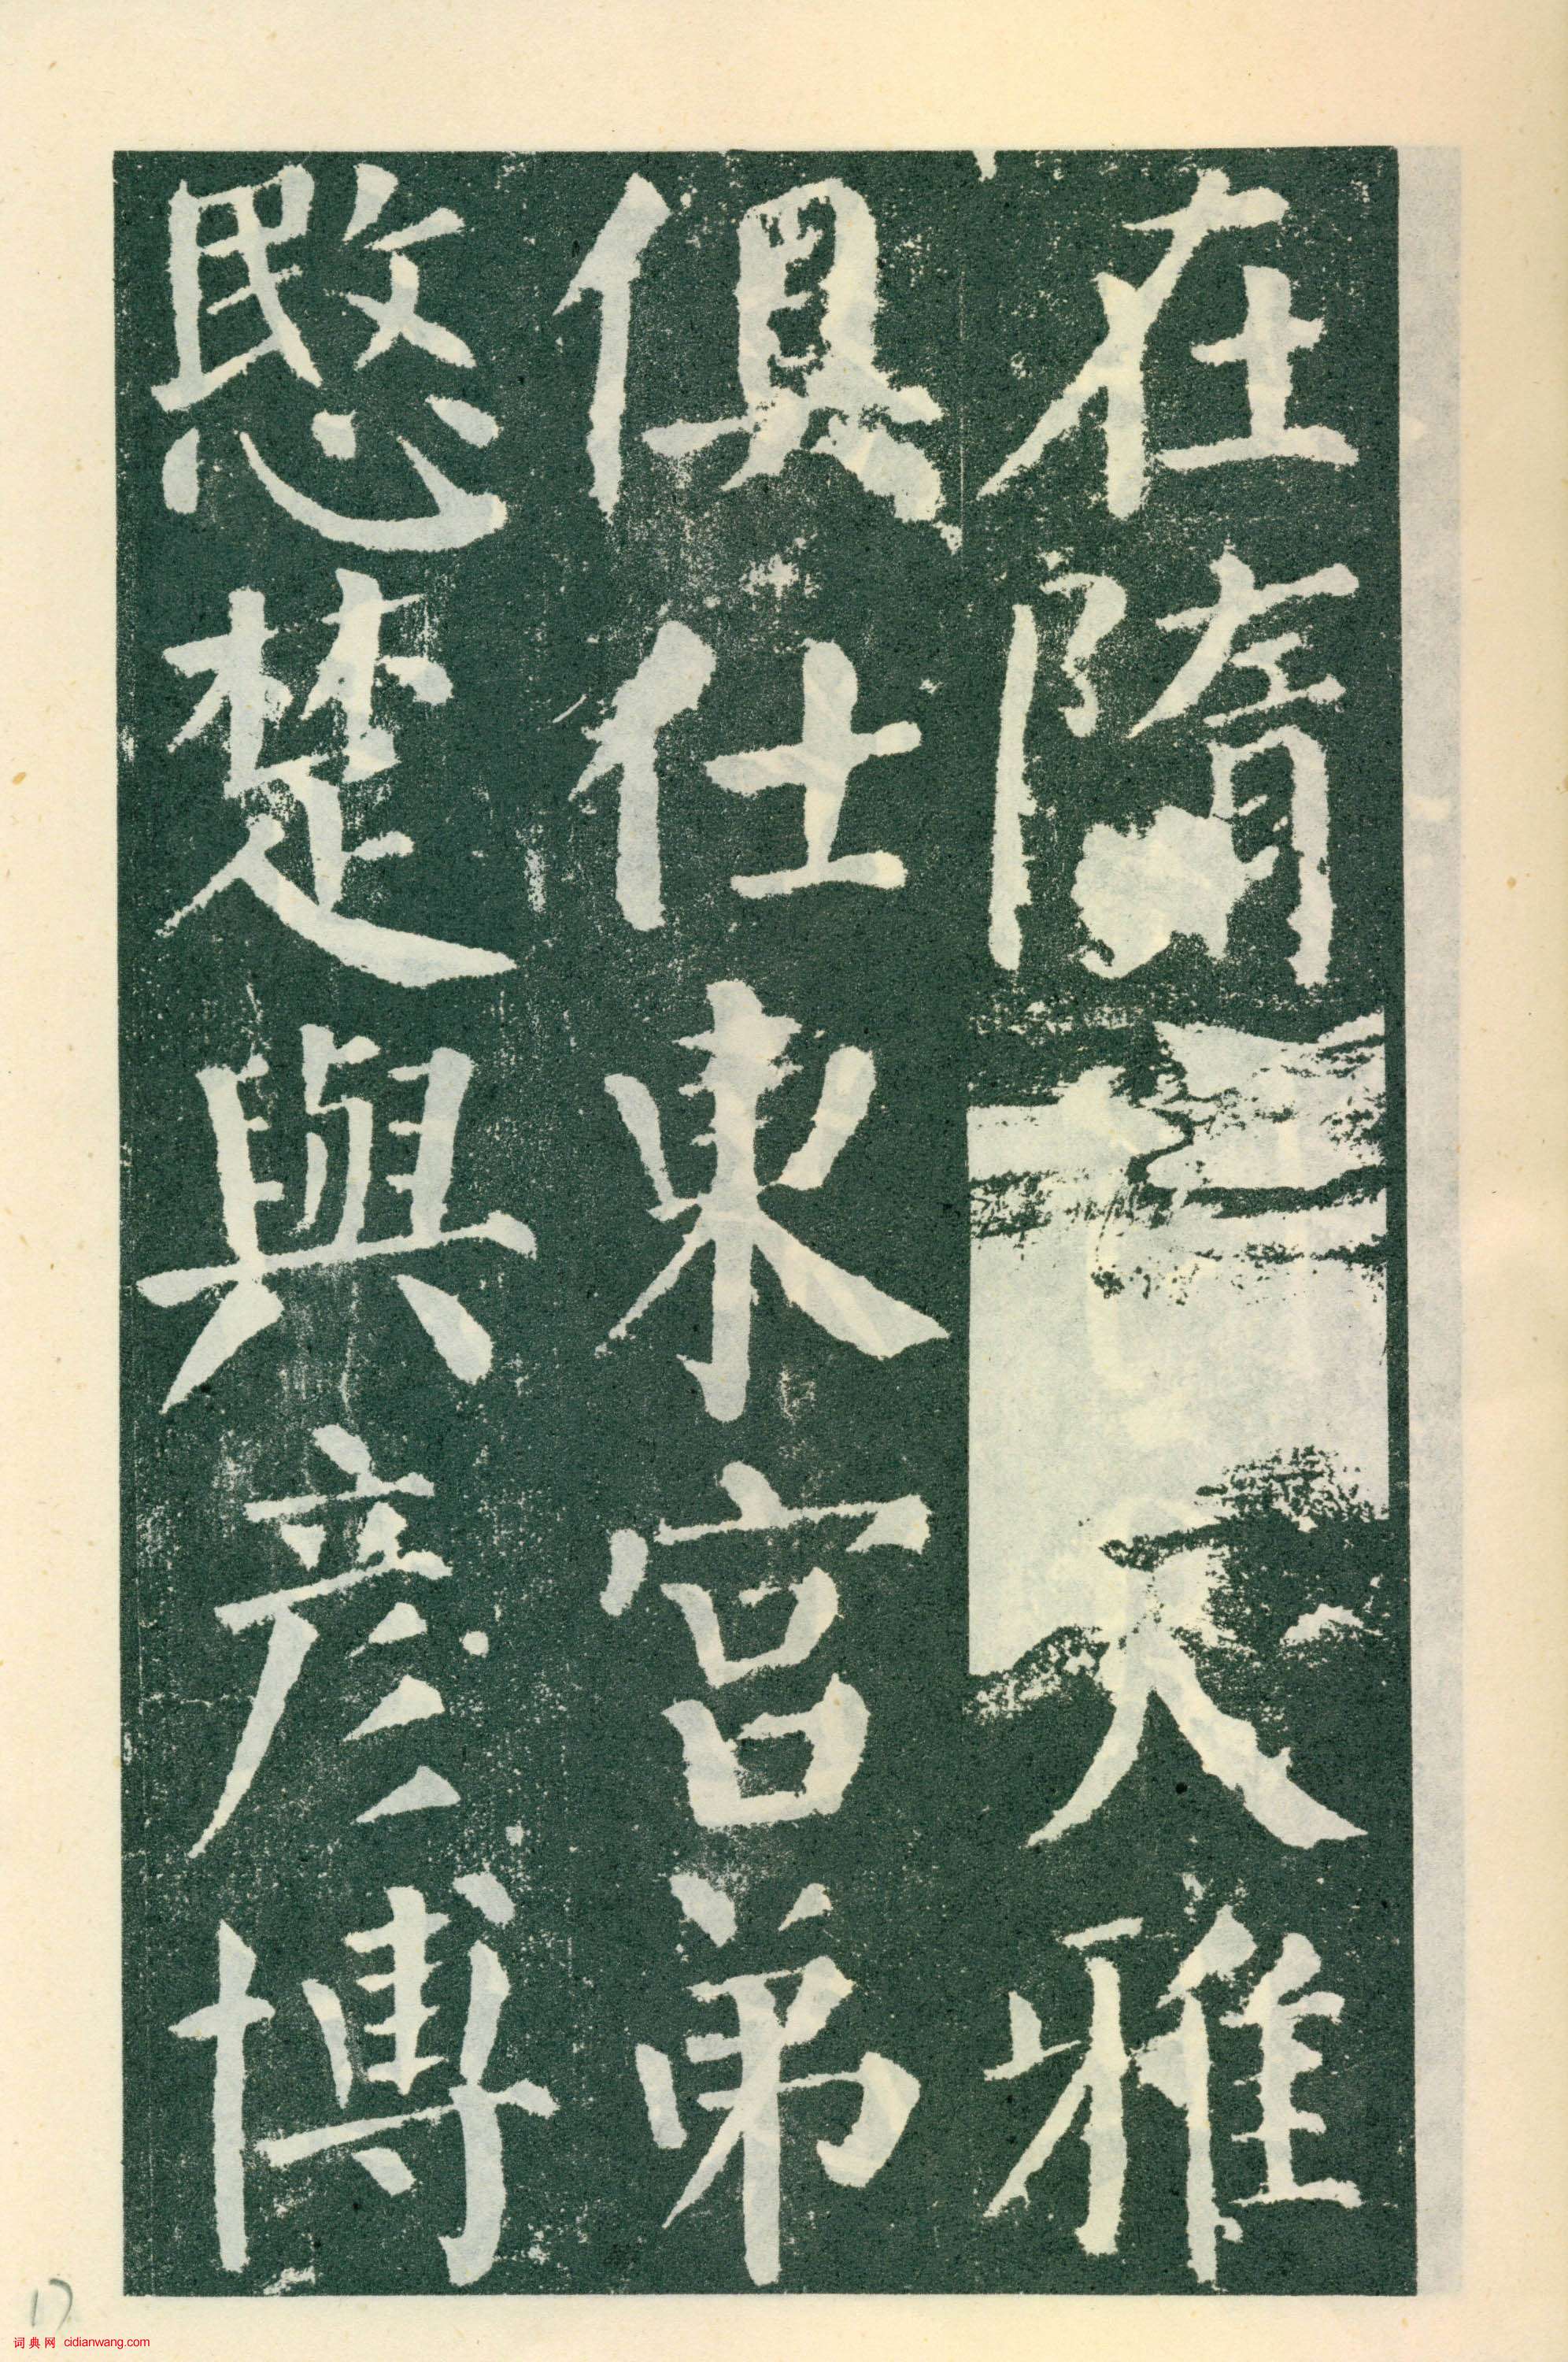 在隋大雅
俱仕東宮弟
愍楚與彥博
17
词典网 cidianwang.com